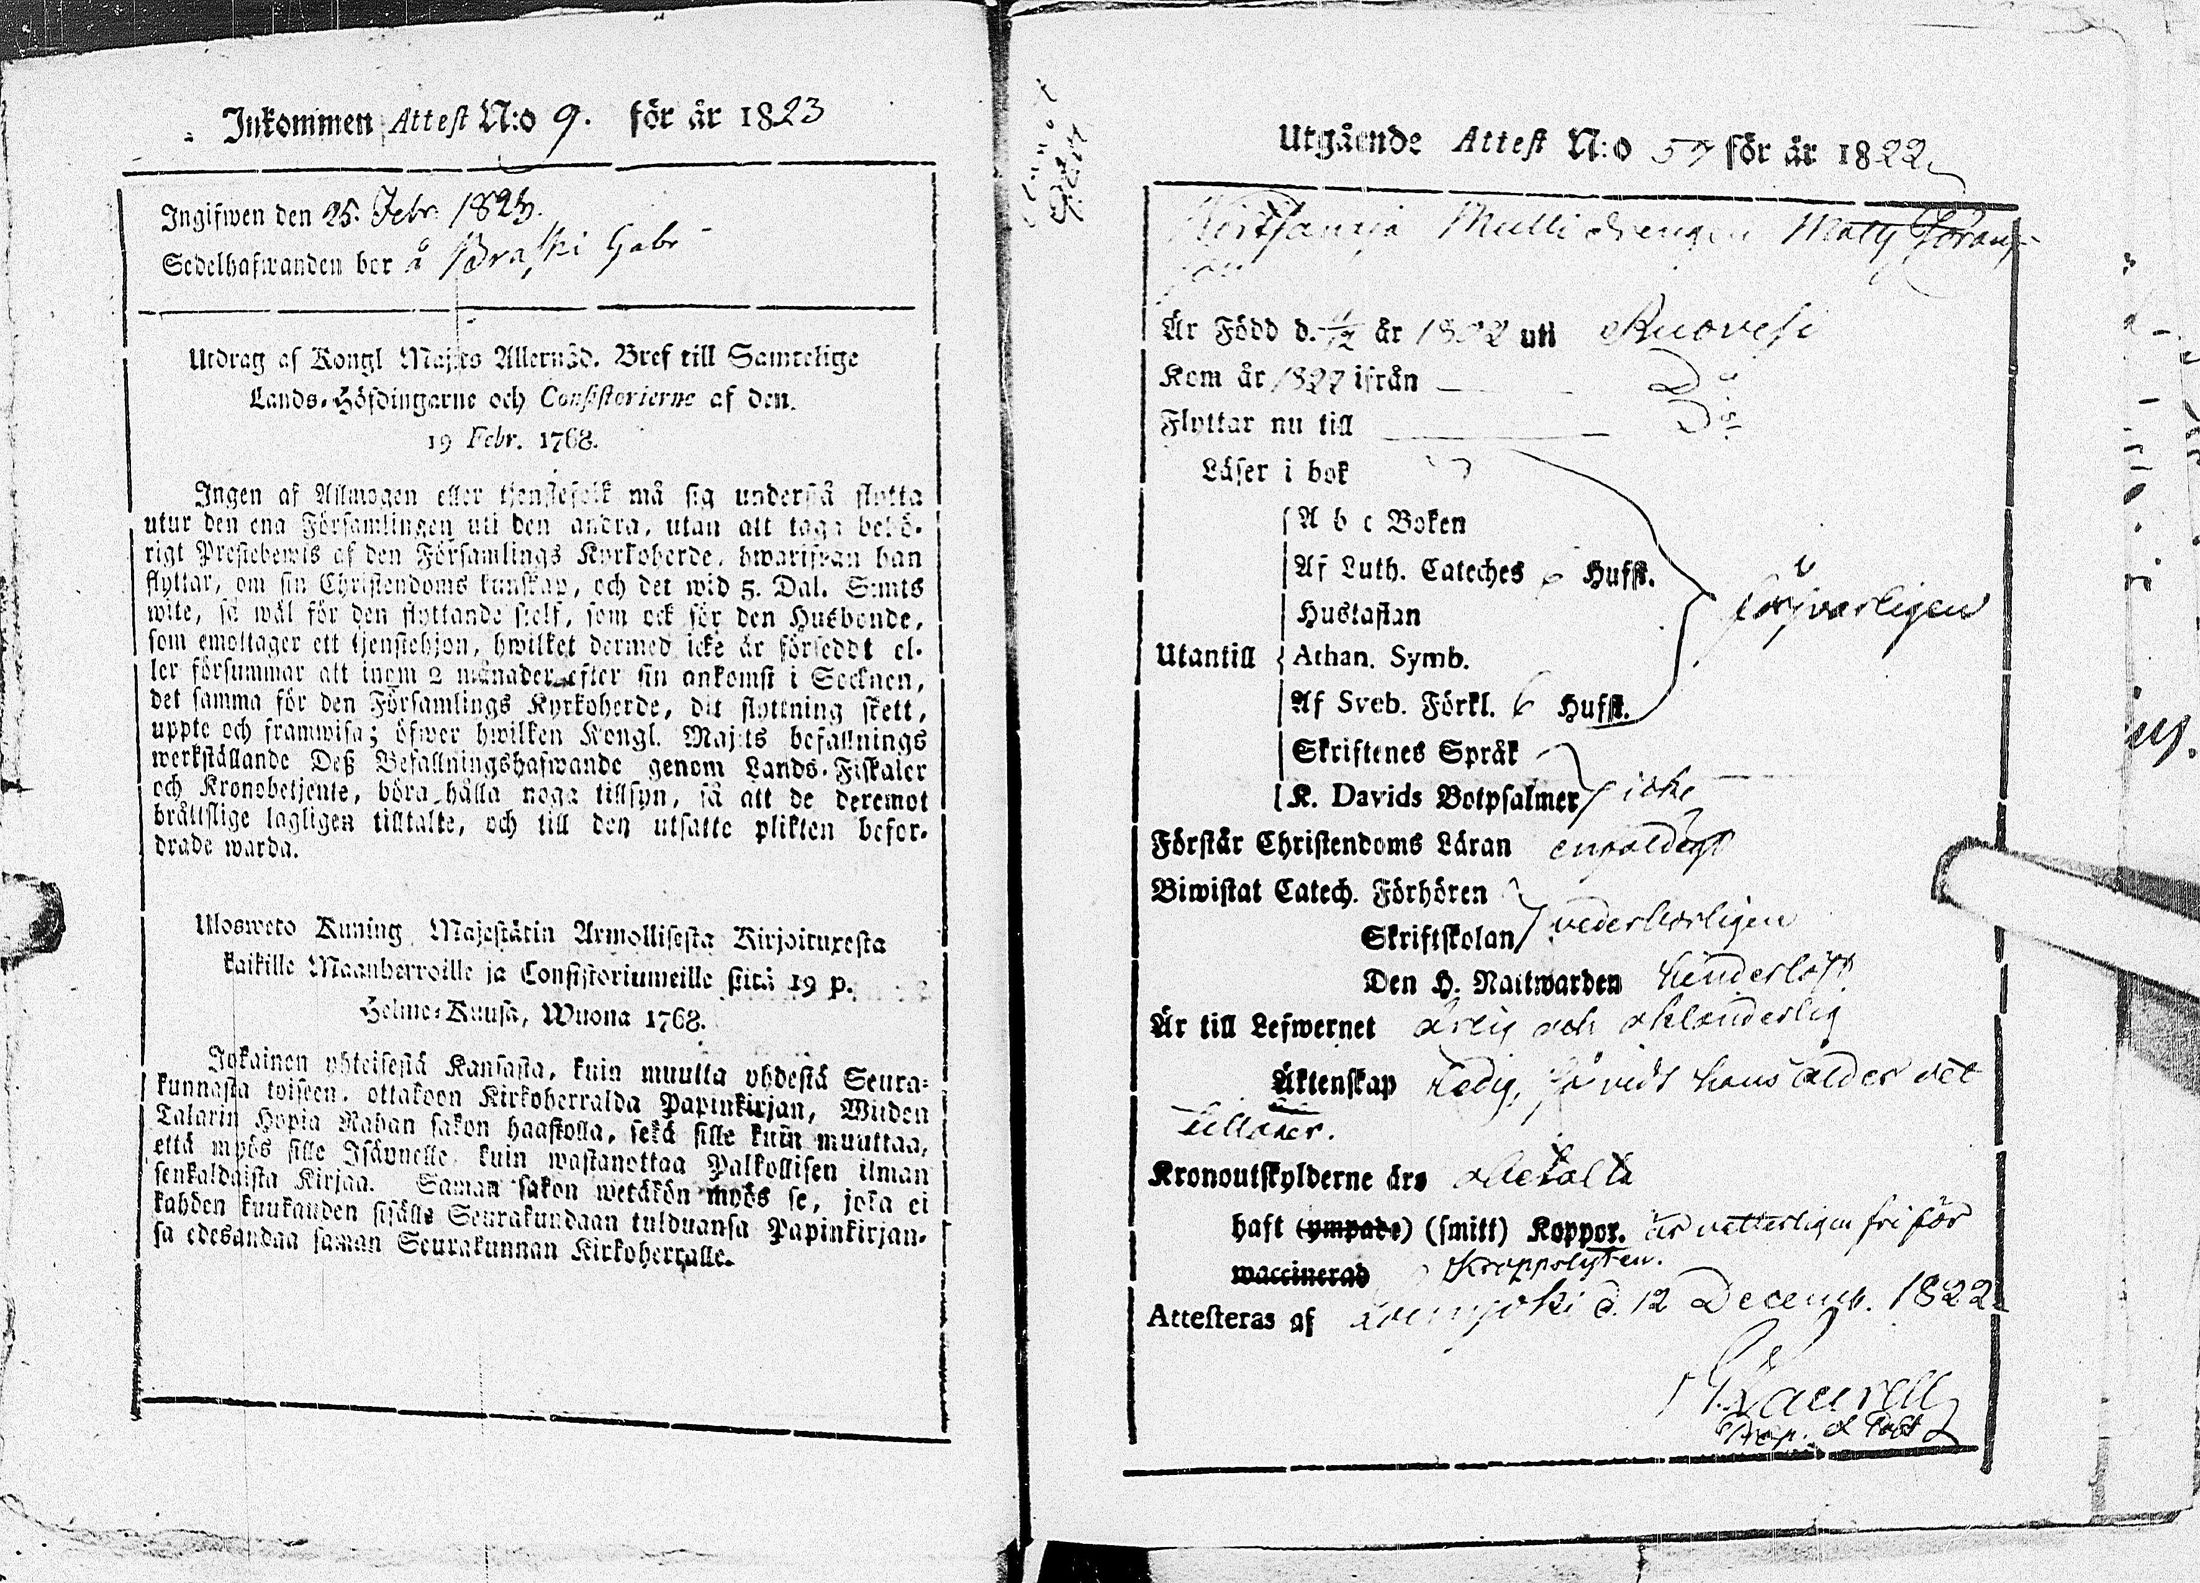 Inkommen Attest N:o 9. för år 1823
Ingifwen den 25. Febr. 1823.
Sedelhafwanden bor å Braski Gabr
Utdrag af Kongl Maj:ts Allernåd. Bref till Samtelige
Lands-Höfdingarne och Consistorierne af den.
19 Febr. 1768.
Ingen af Allmogen eller tjenstefolk må sig understå flytta
utur den ena Församlingen uti den andra, utan att taga behö-
rigt Prestebewis af den Församlings Kyrkoherde, hwarifran han
flyttar, om sin Christendoms kunskap, och det wid 5. Dal. S:mts
wite, så wäl för den flyttande sielf, som ock för den Husbonde,
som emottager ett tjenstehjon, hwilket dermed icke är försedt el-
ler försummar att inom 2 månader efter sin ankomst i Socknen,
det samma för den Församlings Kyrkoherde, dit flyttning skett,
uppte och framwisa; öfwer hwilken Kongl. Maj:ts befallnings
werkställande Deß Befallningshafwande genom Lands-Fiskaler
och Kronobetjente, böra hålla noga tillsyn, så att de deremot
bråttslige lagligen tilltalte, och till den utsatte plikten befor-
drade warda.
Uloswето Kuning Majestätin Armollisesta Kirjoituxesta
kaikille Maanherroille ja Consistoriumeille siitä 19 p.
Helme-Kuusa, Wuona 1768.
Jokainen yhteisestä Kansasta, kuin muutta yhdestä Seura-
kunnasta toiseen, ottakoon Kirkoherralda Papinkirjan, Wiiden
Talarin Hopia Rahan sakon haastolla, sekä sille kuin muuttaa,
että myös sille Isännelle, kuin wastanottaa Palkollisen ilman
senkaldaista Kirjaa. Saman sakon wetäkön myös se, joka ei
kahden kuukauden sisälle Seurakundaan tulduansa Papinkirjan-
sa edesandaa saman Seurakunnan Kirkoherralle.
Utgående Attest N:o 57 för år 1822
Mulli drengen Matts Göran-
son
Är Född d. år 1802 uti Ruovesi
Kom år 1822 ifrån D:o
Flyttar nu till D:o
Läser i bok
A b c Boken
Af Luth. Cateches Hufst.
Hustaflan
försvarligen
Utantill Athan. Symb.
Af Sveb. Förkl. 6 Hufst.
Skriftenes Språk
K. Davids Botpsalmer icke
Förstår Christendoms Läran enfaldigt
Biwistat Catech. Förhören
Skriftskolan vederbörligen
Den H. Nattwarden hinderlöst
Är till Lefwernet ärlig och oklanderlig
Äktenskap ledig, så vidt hans ålder det
tillåter.
Kronoutskylderne äro obetalta
haft (ympade) (smitt) Koppor. är vetterligen fri för
waccinerad Kroppslyten.
Attesteras af d. 12 Decemb. 1822
Laurell
Prop. o Past